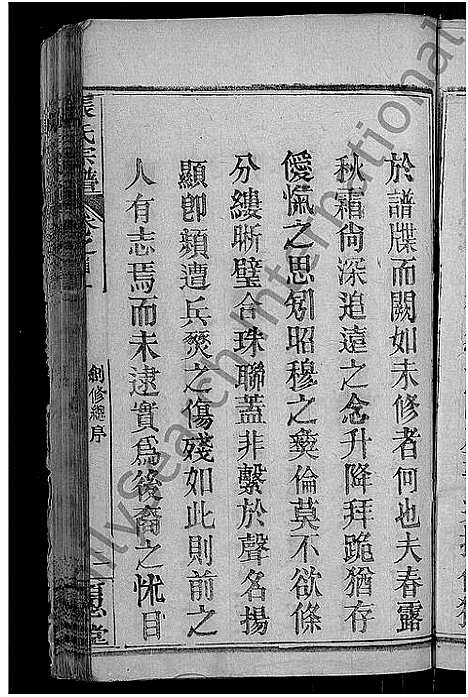 於譜牒而闕如未修者何也夫春露
秋霜尙深追遠之念升降拜跪猶存
僾愾之思矧昭穆之彝倫莫不欲條
分縷晰璧合珠聯蓋非繫於聲名揚
顯卽頻遭兵燹之傷殘如此則前之
人有志焉而未逮實爲後裔之怵目
張氏宗譜
卷之首
創修總序
堂